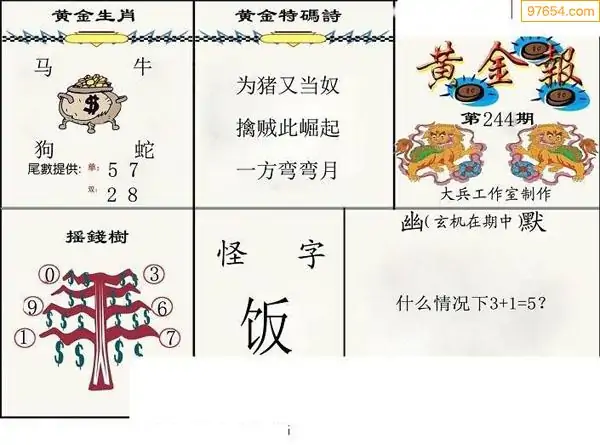 97654.com
黄金生肖
马 牛
狗 蛇
尾數提供: 单: 5 7
双: 2 8
黄金特碼詩
为猪又当奴
擒贼此崛起
一方弯弯月
黄金報
第244期
大兵工作室制作
摇錢樹
0 3
9 6
1 7
怪 字
饭
幽(玄机在期中)默
什么情况下3+1=5?
i